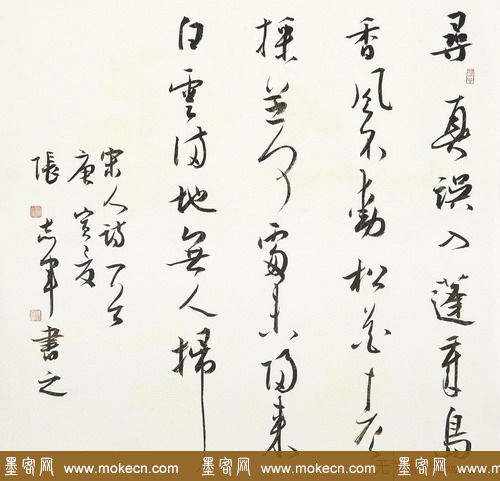 尋真誤入蓬莱島
香風不動松花老
採芝何處未歸来
白雲满地無人掃
宋人诗一首
庚寅夏
張志軍書之
墨客网 www.mokecn.com 墨客网 www.mokecn.com 墨客网 www.mokecn.com